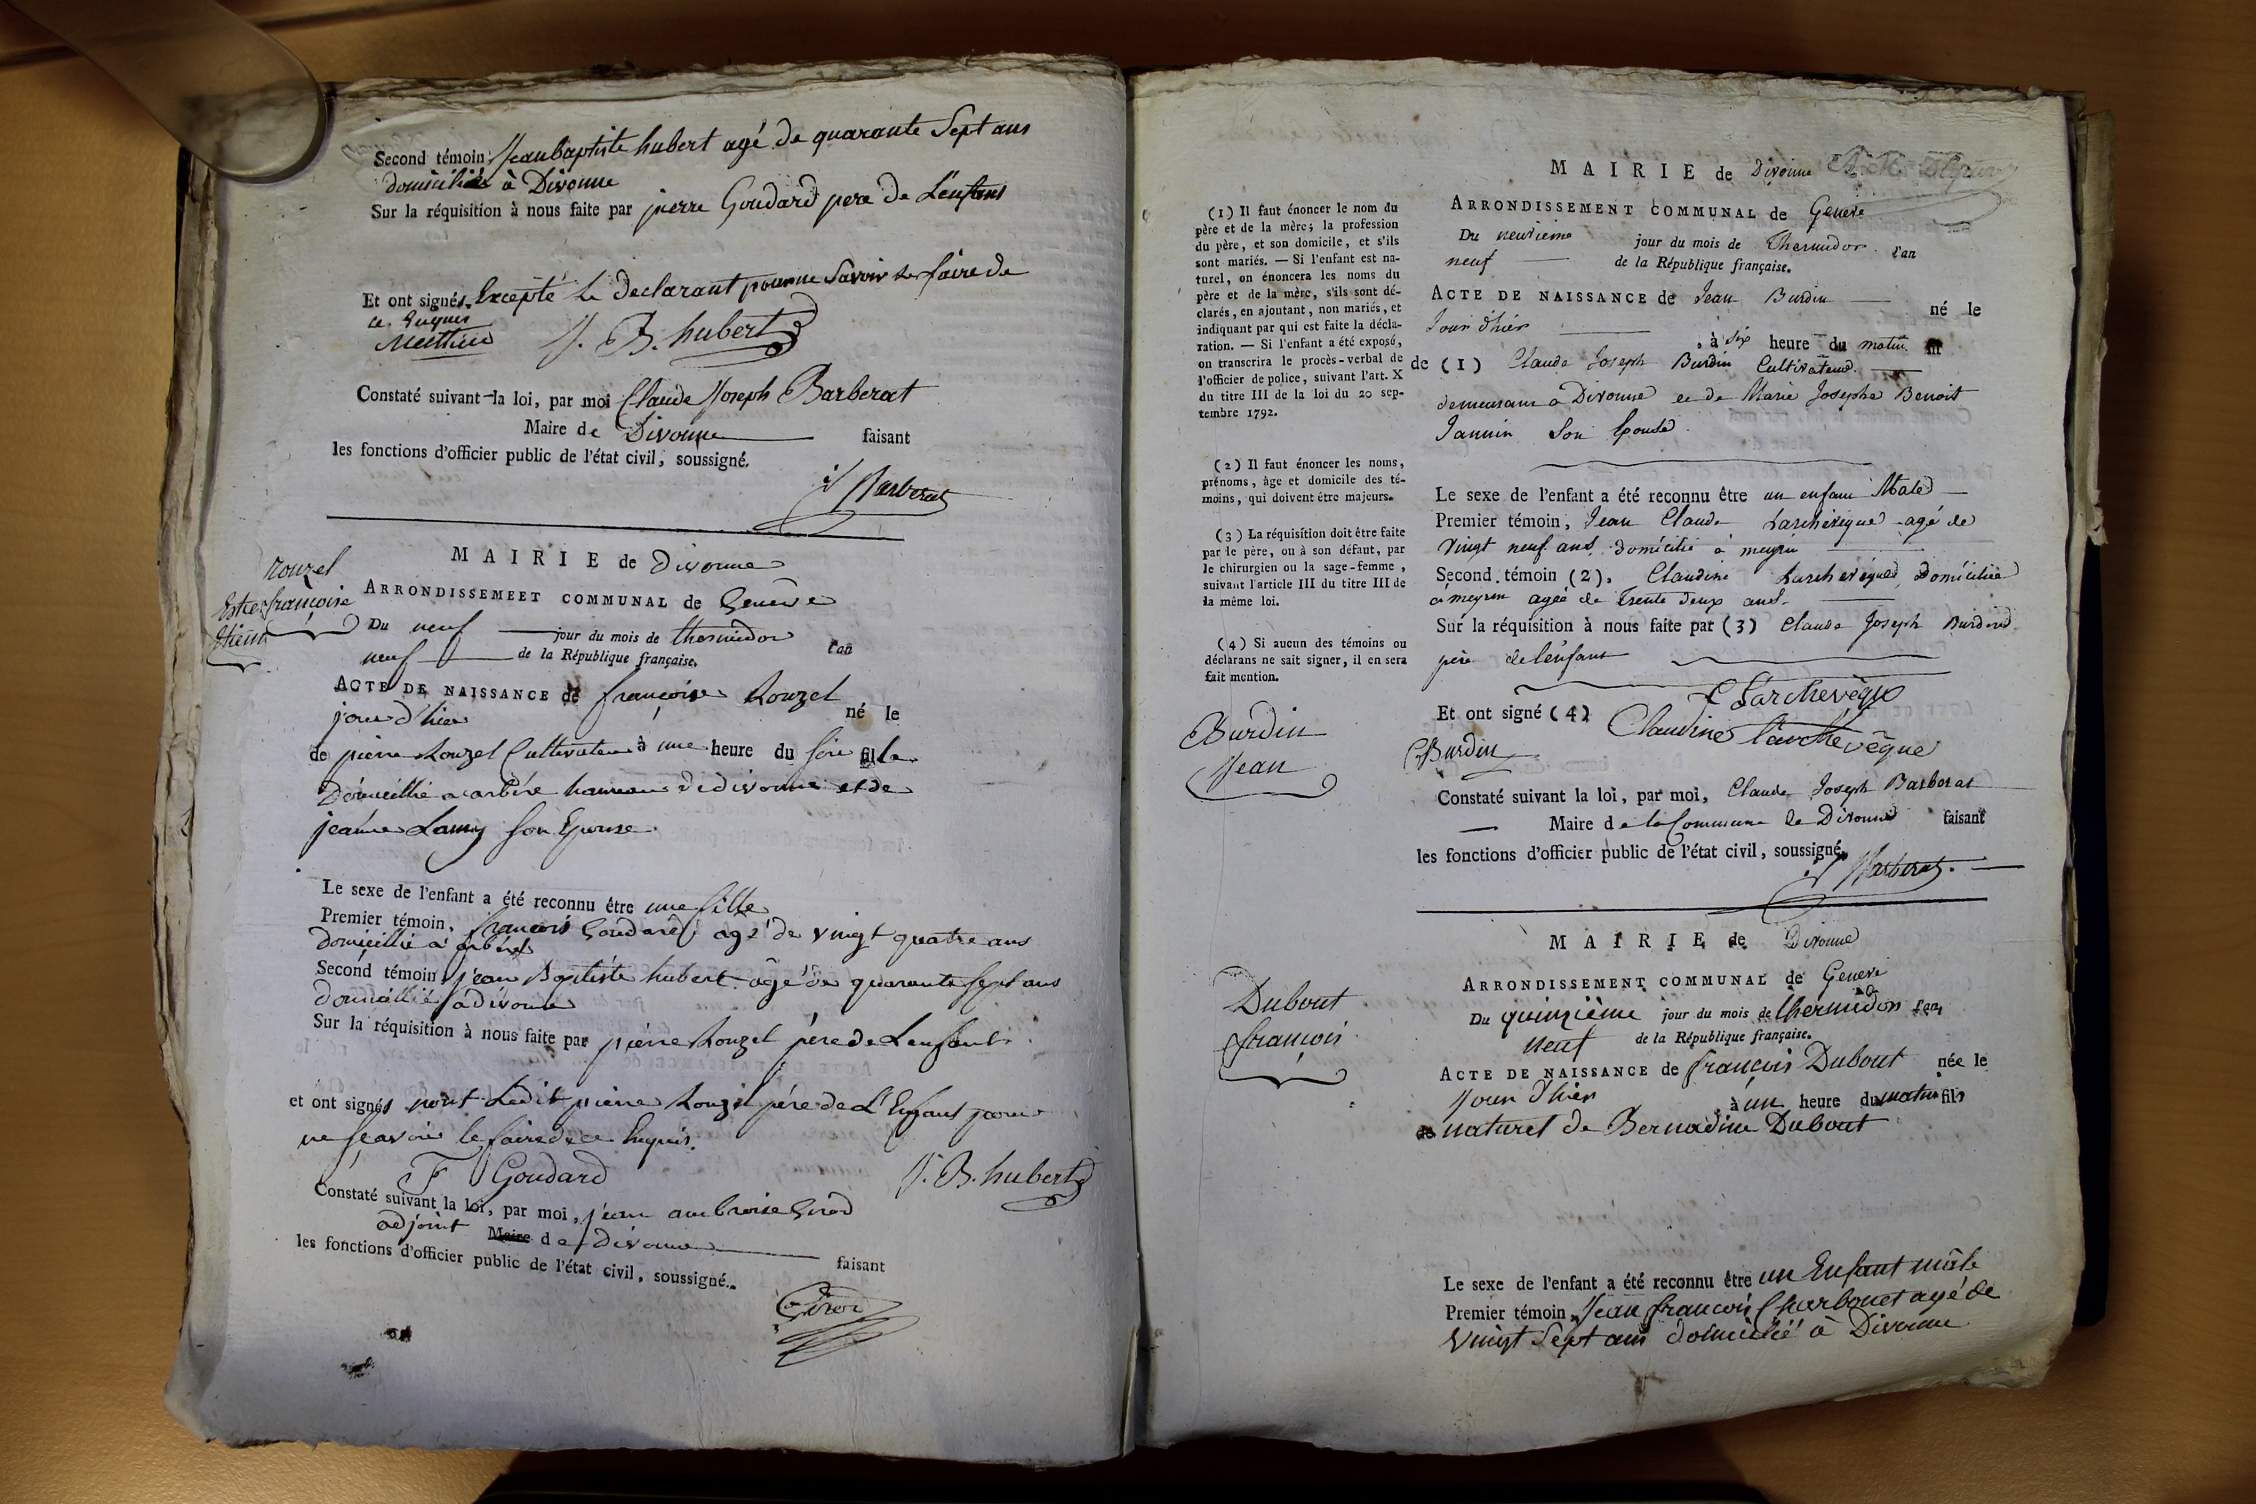 Second témoin, Jean baptiste hubert agé de quarante Sept ans
domicilié à Divonne
Sur la réquisition à nous faite par pierre Goudard pere de L'enfans
Et ont signés Excepté le declarant pour ne Savoir le faire de
ce Enquis
J. B. hubert
Constaté suivant la loi, par moi Claude Joseph Barberat
Maire de Divonne faisant
les fonctions d'officier public de l'état civil, soussigné.
Barberat
MAIRIE de Divonne
Rouzel
françoise
ARRONDISSEMEET COMMUNAL de Genève
Du neuf jour du mois de thermidor l'an
neuf de la République française.
ACTE DE NAISSANCE de françoise Rouzel
jour d'hier né le
de pierre Rouzel Cultivateur à une heure du soir fille
Domicillié a arbére hameau de divonne et de
jeanne Lamy son Epouse
Le sexe de l'enfant a été reconnu être une fille
Premier témoin, francois Goudard agé de vingt quatre ans
domicillié a arbére
Second témoin, jean Baptiste hubert agé de quarante sept ans
domicillié a divonne
Sur la réquisition à nous faite par pierre Rouzel père de L'enfant
et ont signés non Ledit pierre Rouzel père de L'Enfant pour
ne sçavoir le faire de ce Enquis.
F Goudard J. B. hubert
Constaté suivant la loi, par moi, jean ambroise Girod
adjoint Maire de Divonne faisant
les fonctions d'officier public de l'état civil, soussigné.
Girod
MAIRIE de Divonne
ARRONDISSEMENT COMMUNAL de Geneve
Du neuvieme jour du mois de Thermidor l'an
neuf de la République française.
ACTE DE NAISSANCE de Jean Burdin né le
Jour d'hier, à six heure du matin fil
de (1) Claude Joseph Burdin Cultivateur
demeurant a Divonne et de Marie Josephe Benoit
Jannin Son Epouse
Le sexe de l'enfant a été reconnu être un enfant Male
Premier témoin, Jean Claude Larchevêque agé de
Vingt neuf ans domicilié a meyrin
Second témoin (2), Claudine Larchevêque Domiciliée
a meyrin agée de Trente deux ans.
Sur la réquisition à nous faite par (3) Claude Joseph Burdin
père de l'enfant
Et ont signé (4) Larchevêque
Claudine Larchevêque
Burdin
Constaté suivant la loi, par moi, Claude Joseph Barberat
Maire de la Commune de Divonne faisant
les fonctions d'officier public de l'état civil, soussigné.
Barberat.
(1) Il faut énoncer le nom du
père et de la mère; la profession
du père, et son domicile, et s'ils
sont mariés. — Si l'enfant est na-
turel, on énoncera les noms du
père et de la mère, s'ils sont dé-
clarés, en ajoutant, non mariés, et
indiquant par qui est faite la décla-
ration. — Si l'enfant a été exposé,
on transcrira le procès-verbal de
l'officier de police, suivant l'art. X
du titre III de la loi du 20 sep-
tembre 1792.
(2) Il faut énoncer les noms,
prénoms, âge et domicile des té-
moins, qui doivent être majeurs.
(3) La réquisition doit être faite
par le père, ou à son défaut, par
le chirurgien ou la sage-femme,
suivant l'article III du titre III de
la même loi.
(4) Si aucun des témoins ou
déclarans ne sait signer, il en sera
fait mention.
Burdin
Jean
MAIRIE de Divonne
ARRONDISSEMENT COMMUNAL de Geneve
Du quinzième jour du mois de thermidor l'an
neuf de la République française.
ACTE DE NAISSANCE de françois Dubout née le
Jour d'hier à un heure du matin fils
de naturel de Bernadine Dubout
Le sexe de l'enfant a été reconnu être un Enfant mâle
Premier témoin, Jean françois Charbonet agé de
vingt Sept ans domicilié à Divonne
Dubout
françois